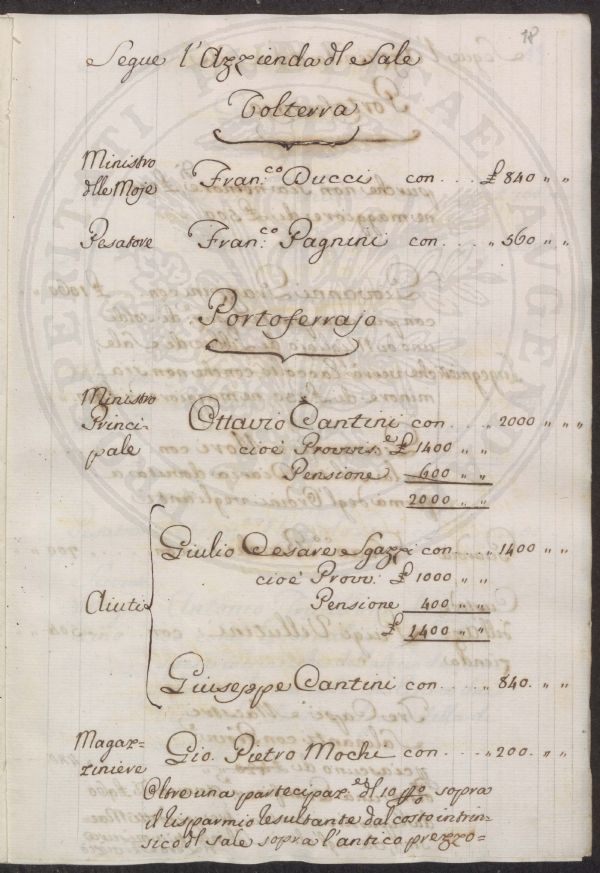 18
Segue l'Azzienda dl Sale
Volterra
Ministro
dlle Moje Fran.co Ducci con . . . . £ 840 " "
Pesatore Fran.co Pagnini con . . . . " 560 " "
Portoferrajo
Ministro
Princi-
pale
Ottavio Cantini con . . . . " 2000 " " "
cioè Provvis.e £ 1400 " "
Pensione 600 " "
2000 " "
Aiuti
Giulio Cesare Sgazzi con . . . " 1400 " "
cioè Provv: £ 1000 " "
Pensione 400 " "
£ 1400 " "
Giuseppe Cantini con . . . . " 840. " "
Magaz-
ziniere
Gio. Pietro Mochi con . . . . " 200. " "
Oltre una partecipaz.e dl 10 p% sopra
il risparmio resultante dal costo intrin-
sico dl sale sopra l'antico prezzo =
PERITI